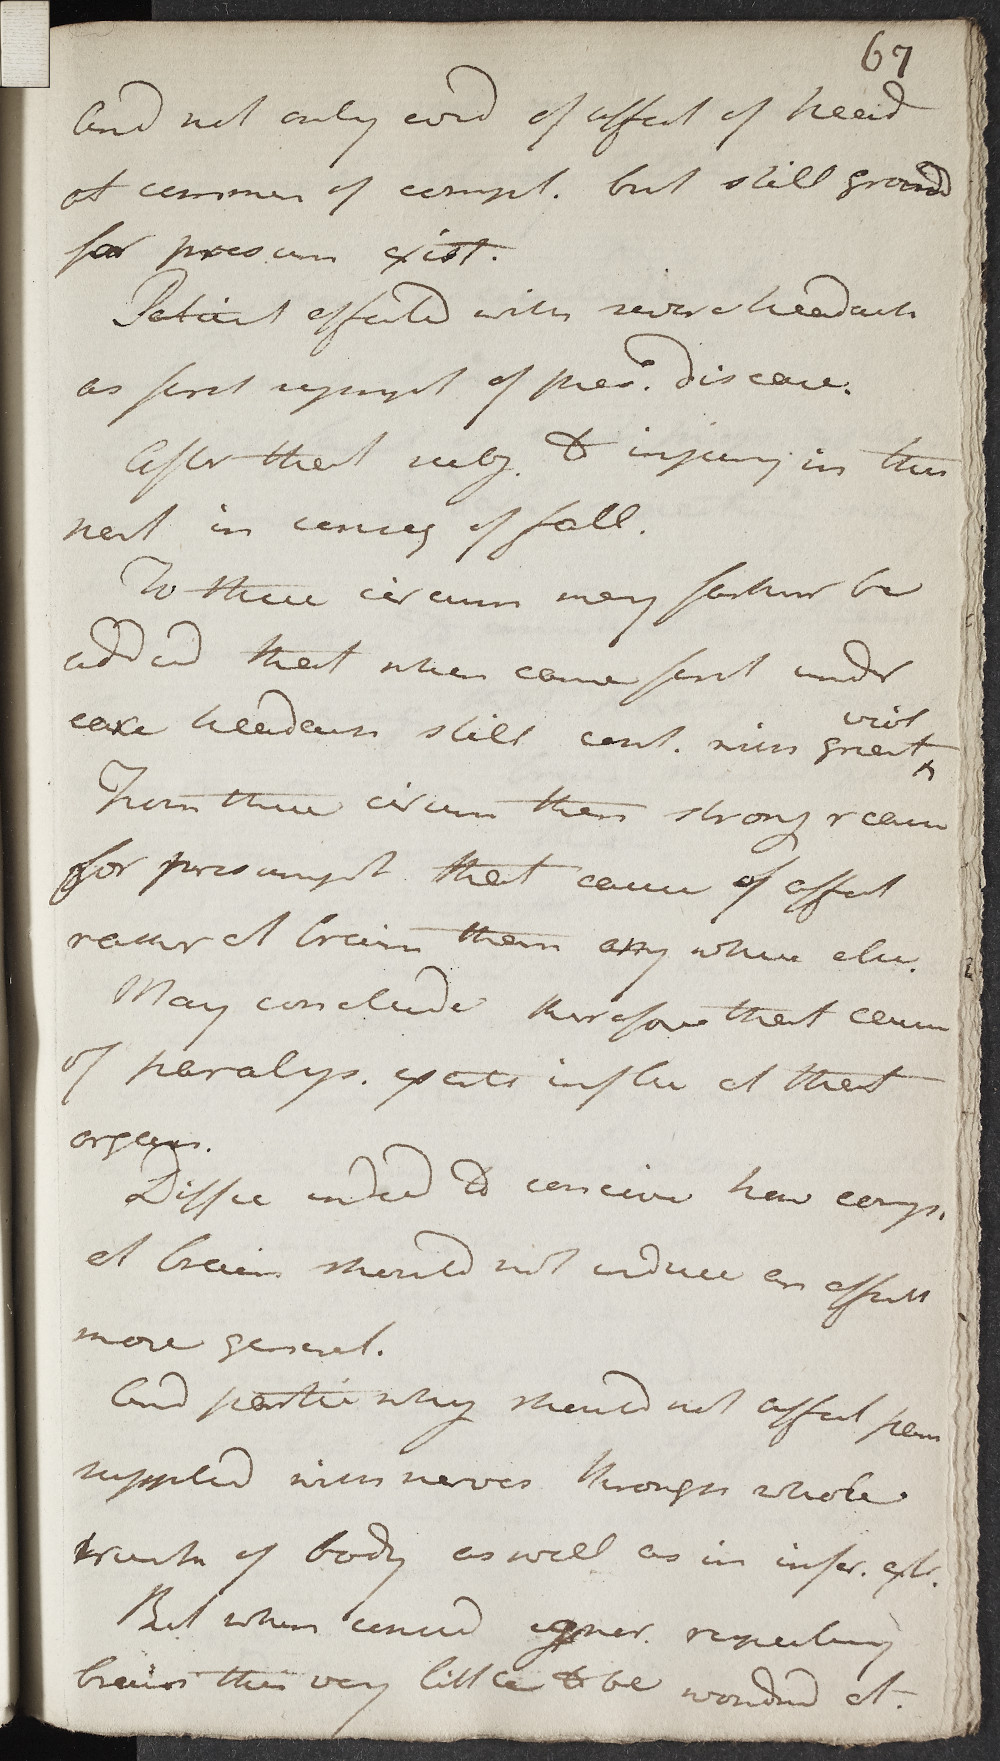 67
And not only evid of affect of head
at commen of compl. but still ground
for presum exist.
Patient affected with severe headach
as first sympt of pres.t disease.
After that subj. to injury in this
part in conseq of fall.
To these circum may farther be
added that when came first under
care headach still cont. with great viol
From these circum then strong reason
for presumpt that cause of affect
rather at brain than any where else.
May conclude therefore that cause
of paralys. exerts influ at that
organ.
Diffic indeed to conceive how comp.
at brain should not induce an effect
more general.
And partic why should not affect
supplied with nerves through whole
trunk of body as well as in infer. ext.
But when consid ignor. respecting
brain this very little to be wondred at.